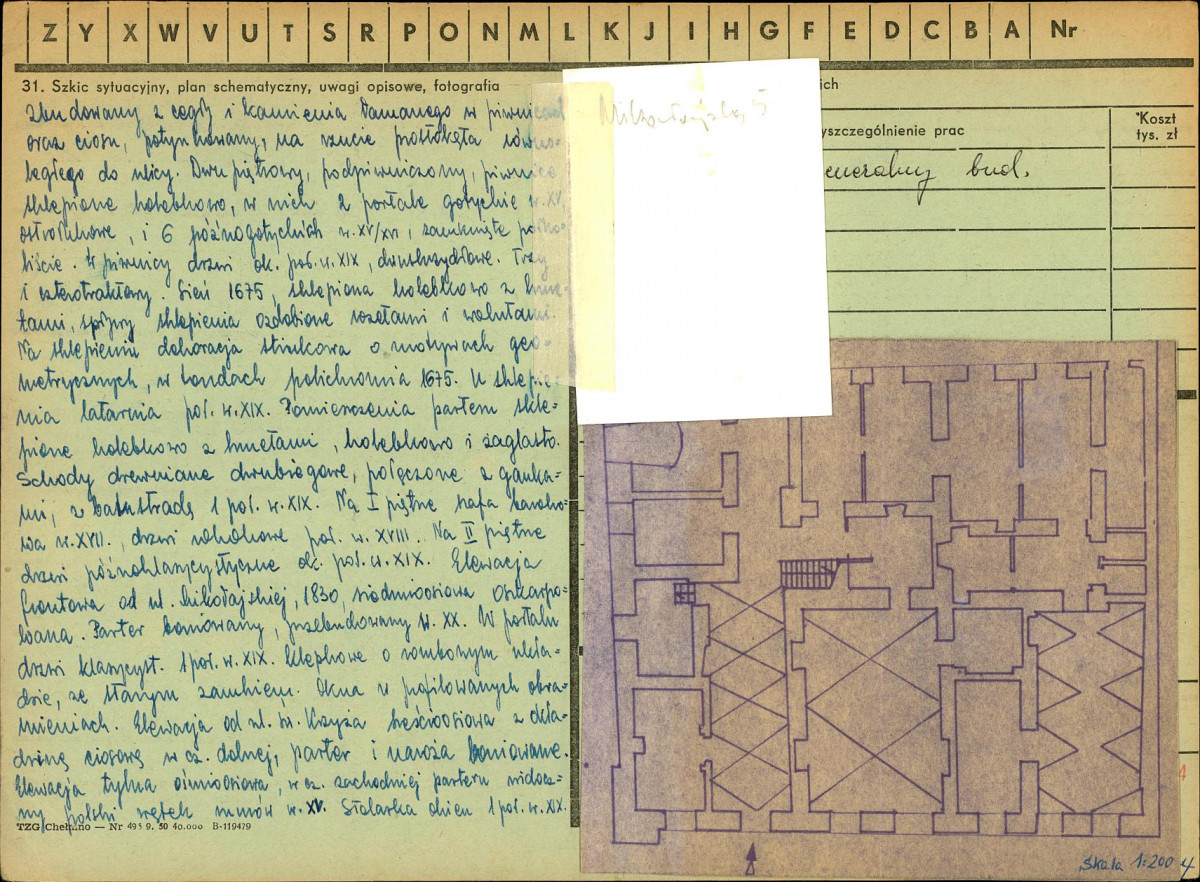 Z Y X W V U T S R P O N M L K J I H G F E D C B A Nr
31. Szkic sytuacyjny, plan schematyczny, uwagi opisowe, fotografia
Zbudowany z cegły i kamienia łamanego w piwnicach
oraz ciosu, potynkowany, na rzucie prostokąta równo-
ległego do ulicy. Dwu piętrowy, podpiwniczony, piwnice
sklepione kolebkowo, w nich 2 portale gotyckie w. XV,
ostrołukowe, i 6 późnogotyckich w. XV/XVI, zamknięte półko-
liście. W piwnicy drzwi ok. poł. w. XIX, dwuskrzydłowe. Trzy
i czterotraktowy. Sień 1675, sklepiona kolebkowo z lune-
tami, spływy sklepienia ozdobione rozetami i wolutami.
Na sklepieniu dekoracja stiukowa o motywach geo-
metrycznych, w tondach polichromia 1675. U sklepie-
nia latarnia poł. w. XIX. Pomieszczenia parteru skle-
pione kolebkowo z lunetami, kolebkowo i żaglasto.
Schody drewniane dwubiegowe, połączone z ganka-
mi, z balustradą 1 poł. w. XIX. Na I piętrze szafa baroko-
wa w. XVII., drzwi rokokowe poł. w. XVIII. Na II piętrze
drzwi późnoklasycystyczne ok. poł. w. XIX. Elewacja
frontowa od ul. Mikołajskiej, 1830, siedmioosiowa oskarpo-
wana. Parter boniowany, przebudowany w. XX. W portalu
drzwi klasycyst. 1 poł. w. XIX. klepkowe o rombowym ukła-
dzie, ze starym zamkiem. Okna w profilowanych obra-
mieniach. Elewacja od ul. św. Krzyża sześcioosiowa z okła-
dziną ciosową w cz. dolnej, parter i naroża boniowane.
Elewacja tylna ośmioosiowa, w cz. zachodniej parteru widocz-
ny polski wątek murów w. XV. Stolarka okien 1 poł. w. XIX.
TZG Chełmno — Nr 495 9. 50 40.000 B-119479
Mikołajska 5
ich
yszczególnienie prac
*Koszt
tys. zł
eneralny bud.
Skala 1:200
4